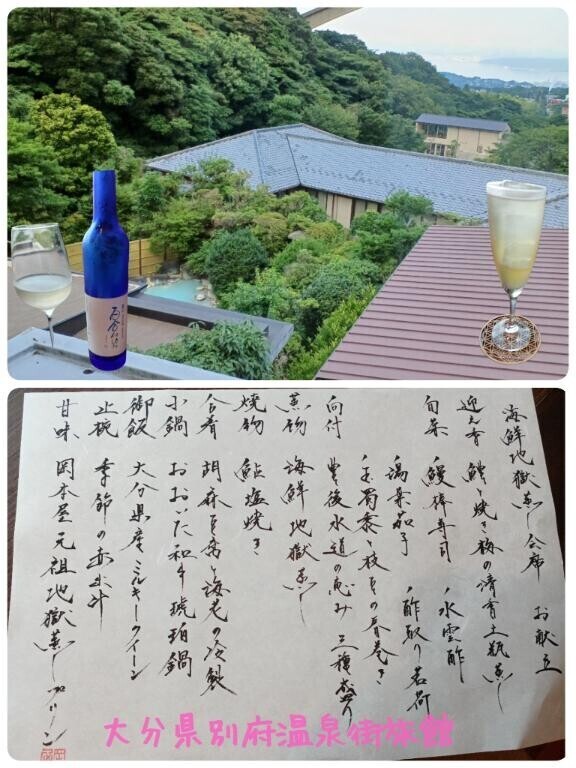 海鮮地獄蒸し会席 お献立
迎え肴 鱧と焼き梅の清香土瓶蒸し
旬菜 鰻棒寿司 ・水雲酢
翡翠茄子 ・酢取り茗荷
・玉蜀黍と枝豆の春巻き
向付 豊後水道の恵み 三種盛り
蒸物 海鮮地獄蒸し
焼物 鮎塩焼き
合肴 胡麻豆腐と海老の冷製
小鍋 おおいた和牛琥珀鍋
御飯 大分県産ミルキークイーン
止椀 季節の赤出汁
甘味 岡本屋元祖地獄蒸しプリン
大分県別府温泉街旅館